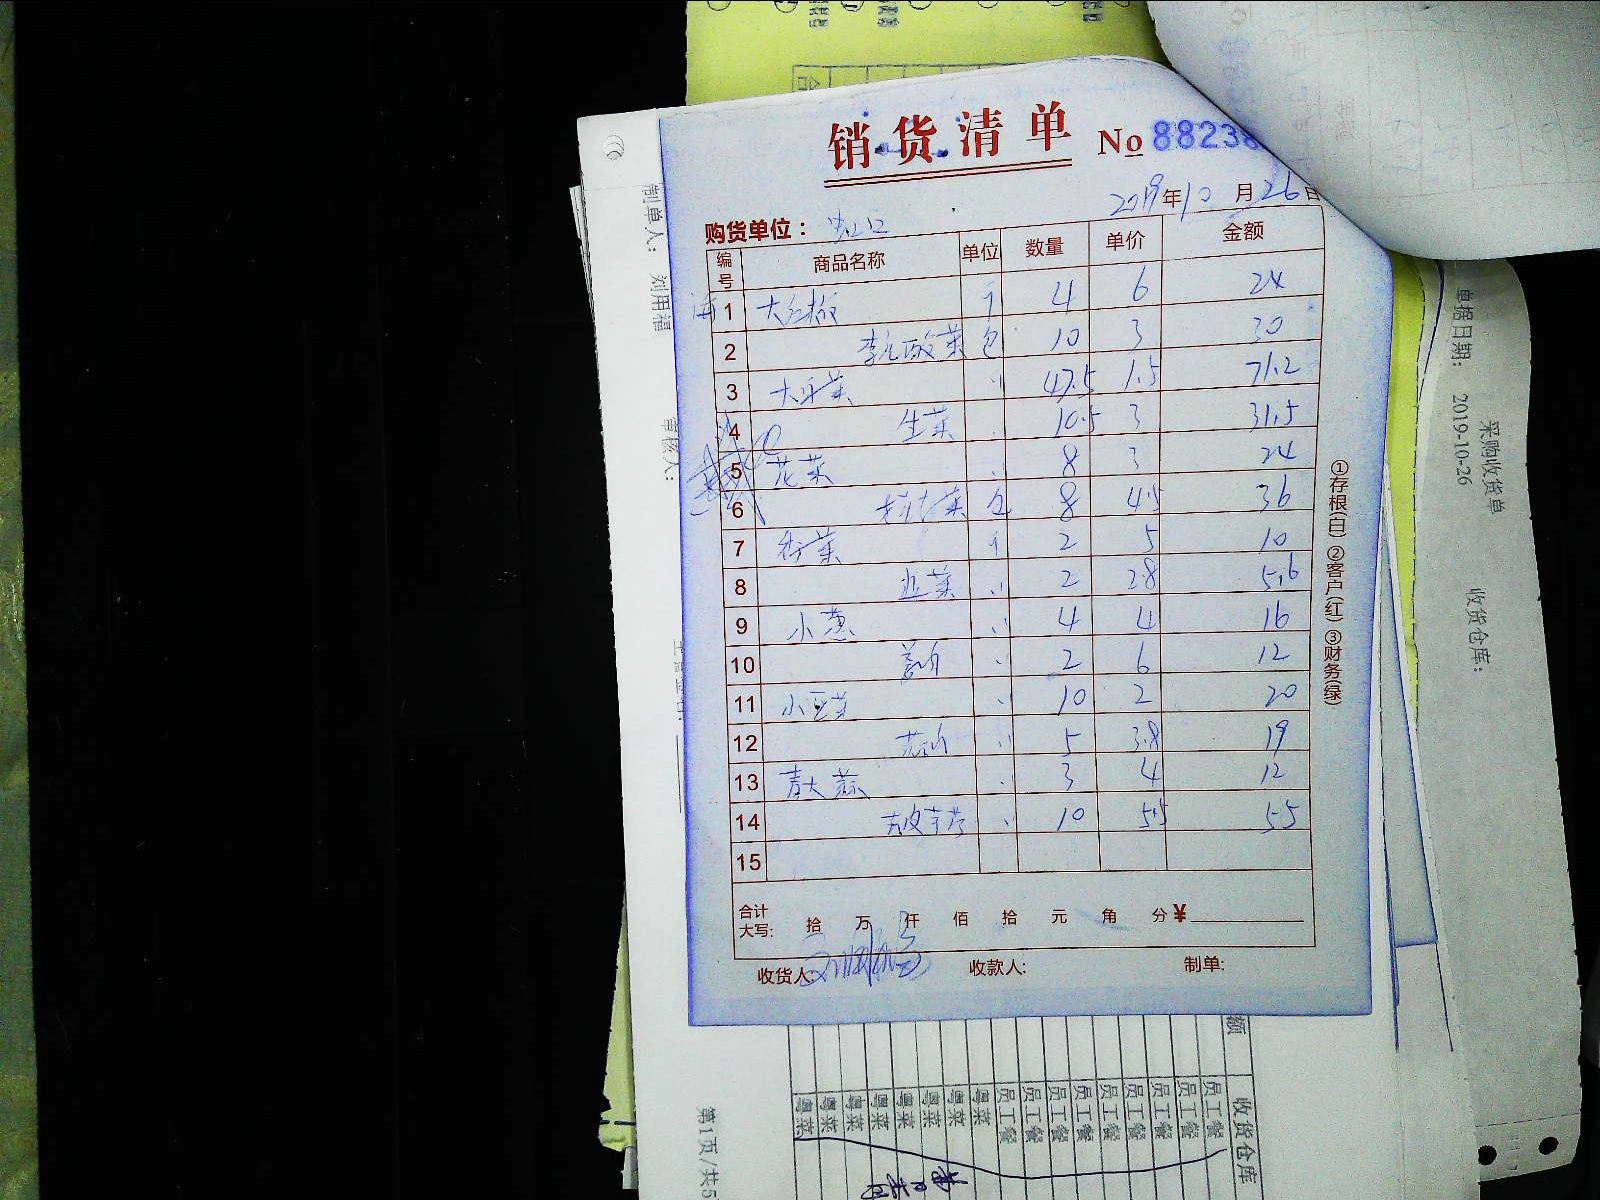 销货清单 No 88238
2019年10月26日
购货单位：
编号 商品名称 单位 数量 单价 金额
1 大红椒 斤 4 6 24
2 酸菜 包 10 3 30
3 大白菜 〃 47.5 1.5 71.2
4 生菜 10.5 3 31.5
5 花菜 8 3 24
6 菜 包 8 4.5 36
7 香菜 斤 2 5 10
8 韭菜 〃 2 2.8 5.6
9 小葱 〃 4 4 16
10 〃 2 6 12
11 小 〃 10 2 20
12 〃 5 3.8 19
13 青大蒜 3 4 12
14 10 5.5 55
15
合计
大写: 拾 万 仟 佰 拾 元 角 分 ¥
收货人: 收款人: 制单:
①存根(白) ②客户(红) ③财务(绿)
制单人： 刘用福
审核人：
单据日期： 2019-10-26
采购收货单
收货仓库：
额
收货仓库
员工餐
员工餐
员工餐
员工餐
员工餐
员工餐
员工餐
员工餐
员工餐
粤菜
粤菜
粤菜
粤菜
粤菜
粤菜
粤菜
粤菜
第1页/共5